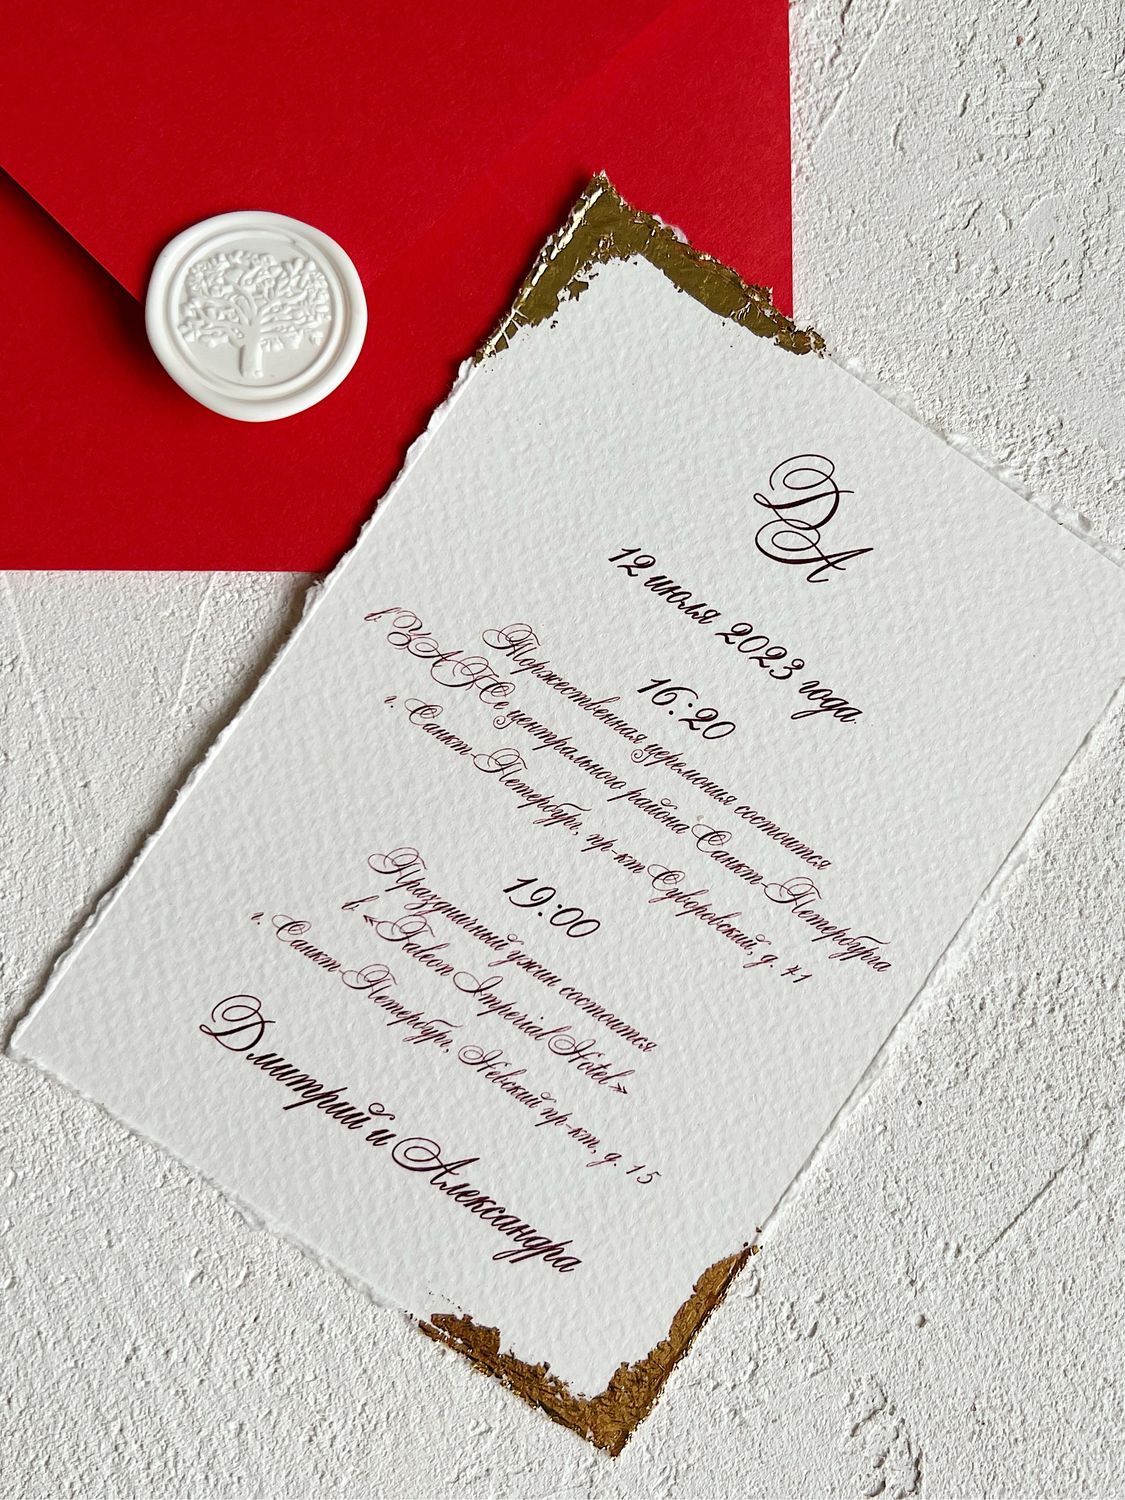 ДА
12 июля 2023 года
16:20
Торжественная церемония состоится
в ЗАГСе центрального района Санкт-Петербурга
г. Санкт-Петербург, пр-кт Суворовский, д. 41
19:00
Праздничный ужин состоится
в «Taleon Imperial Hotel»
г. Санкт-Петербург, Невский пр-кт, д. 15
Дмитрий и Александра